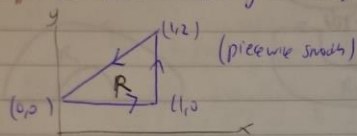 y
(1,2)
(piecewise smooth)
R
(0,0)
(1,0
x